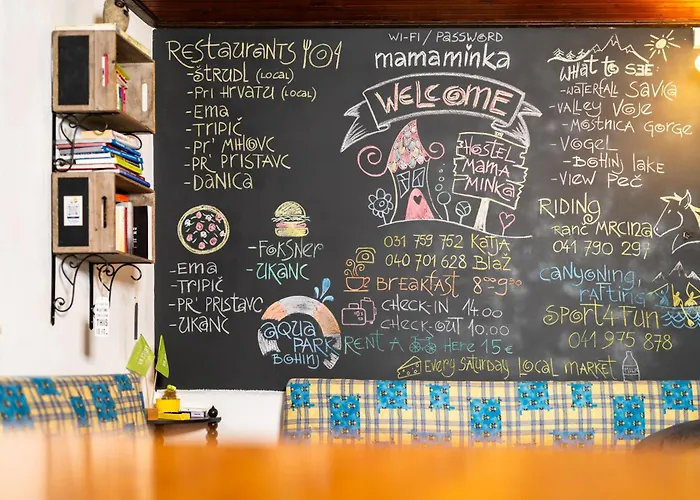 RESTAURANTS
-ŠTRUDL (LOCAL)
-PRI HRVATU (LOCAL)
-EMA
-TRIPIČ
-PR' MIHOVC
-PR' PRISTAVC
-DANICA
-EMA
-TRIPIČ
-PR' PRISTAVC
-UKANC
-FOKSNER
-UKANC
AQUA
PARK
BOHINJ
WI-FI / PASSWORD
mamaminka
WELCOME
HOSTEL
MAMA
MINKA
031 759 752 KATJA
040 701 628 BLAŽ
BREAKFAST 800-900
CHECK-IN 14.00
CHECK-OUT 10.00
RENT A HERE 15€
EVERY SATURDAY LOCAL MARKET
WHAT TO SEE:
-WATERFALL SAVICA
-VALLEY VOJE
-MOSTNICA GORGE
-VOGEL
-BOHINJ LAKE
-VIEW PEČ
RIDING
RANČ MRCINA
041 790 297
CANYONING,
RAFTING
SPORT4FUN
041 975 878